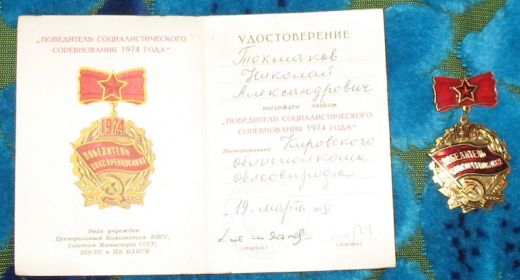 „ПОБЕДИТЕЛЬ СОЦИАЛИСТИЧЕСКОГО
СОРЕВНОВАНИЯ 1974 ГОДА"
1974
ПОБЕДИТЕЛЬ
СОЦСОРЕВНОВАНИЯ
Знак учрежден
Центральным Комитетом КПСС,
Советом Министров СССР,
ВЦСПС и ЦК ВЛКСМ
УДОСТОВЕРЕНИЕ
Токмаков
Николай
Александрович
награжден знаком
„ПОБЕДИТЕЛЬ СОЦИАЛИСТИЧЕСКОГО
СОРЕВНОВАНИЯ 1974 ГОДА"
Постановление Кировского
облисполкома
облсовпрофа
19 марта
(подпись) (подпись)
ПОБЕДИТЕЛЬ
СОЦСОРЕВНОВАНИЯ